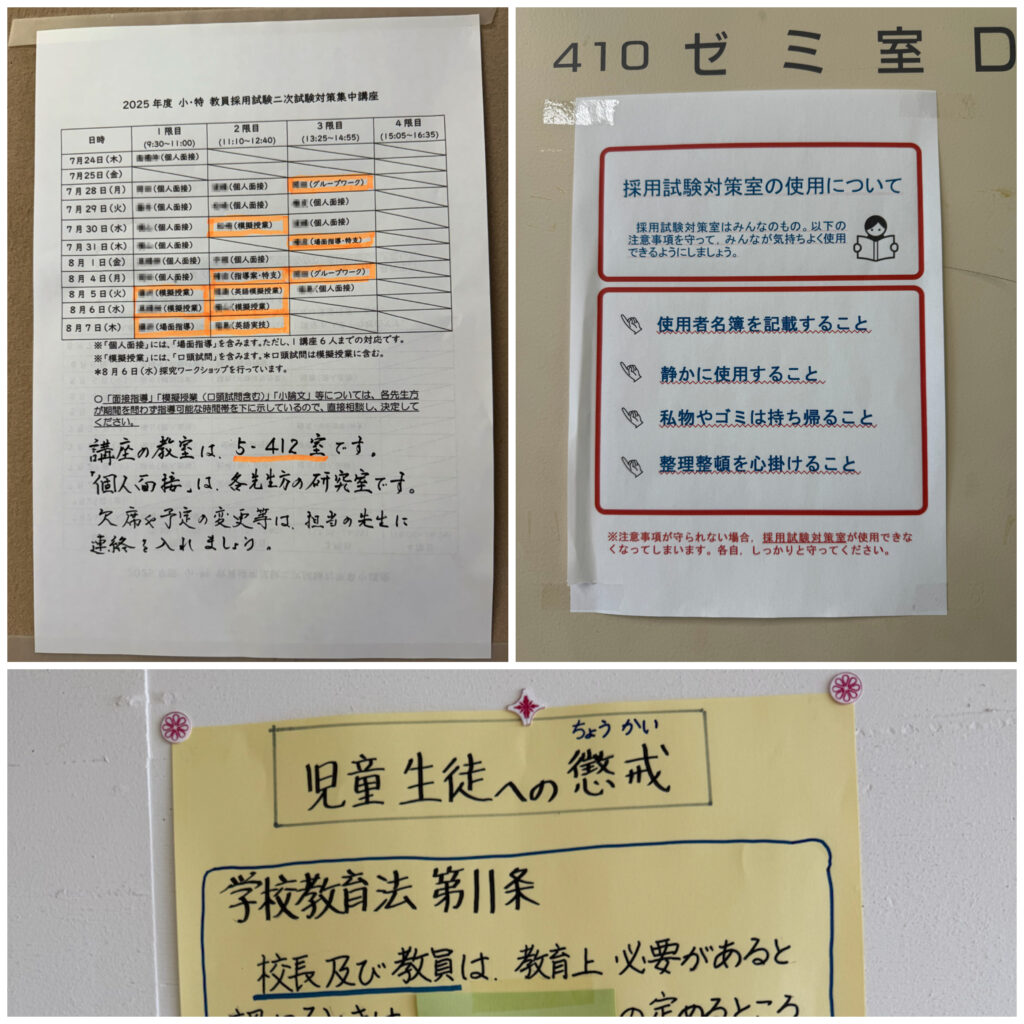 2025年度 小・特 教員採用試験二次試験対策集中講座
日時 1限目 (9:30~11:00) 2限目 (11:10~12:40) 3限目 (13:25~14:55) 4限目 (15:05~16:35)
7月24日(木) (個人面接)
7月25日(金)
7月28日(月) (個人面接) (個人面接) (グループワーク)
7月29日(火) (個人面接) (個人面接) (個人面接)
7月30日(水) (個人面接) (模擬授業) (個人面接)
7月31日(木) (個人面接) (場面指導・特支)
8月1日(金) (個人面接) (個人面接)
8月4日(月) (個人面接) (指導案・特支) (グループワーク)
8月5日(火) (模擬授業) (英語模擬授業) (個人面接)
8月6日(水) (模擬授業) (模擬授業)
8月7日(木) (場面指導) (英語実技)
※「個人面接」には、「場面指導」を含みます。ただし、1講座6人までの対応です。
※「模擬授業」には、「口頭試問」を含みます。*口頭試問は模擬授業に含む。
*8月6日(水)探究ワークショップを行っています。
〇「面接指導」「模擬授業(口頭試問含む)」「小論文」等については、各先生方
が期間を問わず指導可能な時間帯を下に示しているので、直接相談し、決定して
ください。
講座の教室は、5-412室です。
「個人面接」は、各先生方の研究室です。
欠席や予定の変更等は、担当の先生に
連絡を入れましょう。
410 ゼミ室D
採用試験対策室の使用について
採用試験対策室はみんなのもの。以下の
注意事項を守って、みんなが気持ちよく使用
できるようにしましょう。
使用者名簿を記載すること
静かに使用すること
私物やゴミは持ち帰ること
整理整頓を心掛けること
※注意事項が守られない場合、採用試験対策室が使用できな
くなってしまいます。各自、しっかりと守ってください。
ちょう かい
児童生徒への懲戒
学校教育法 第11条
校長及び教員は、教育上必要があると
の定めるところ